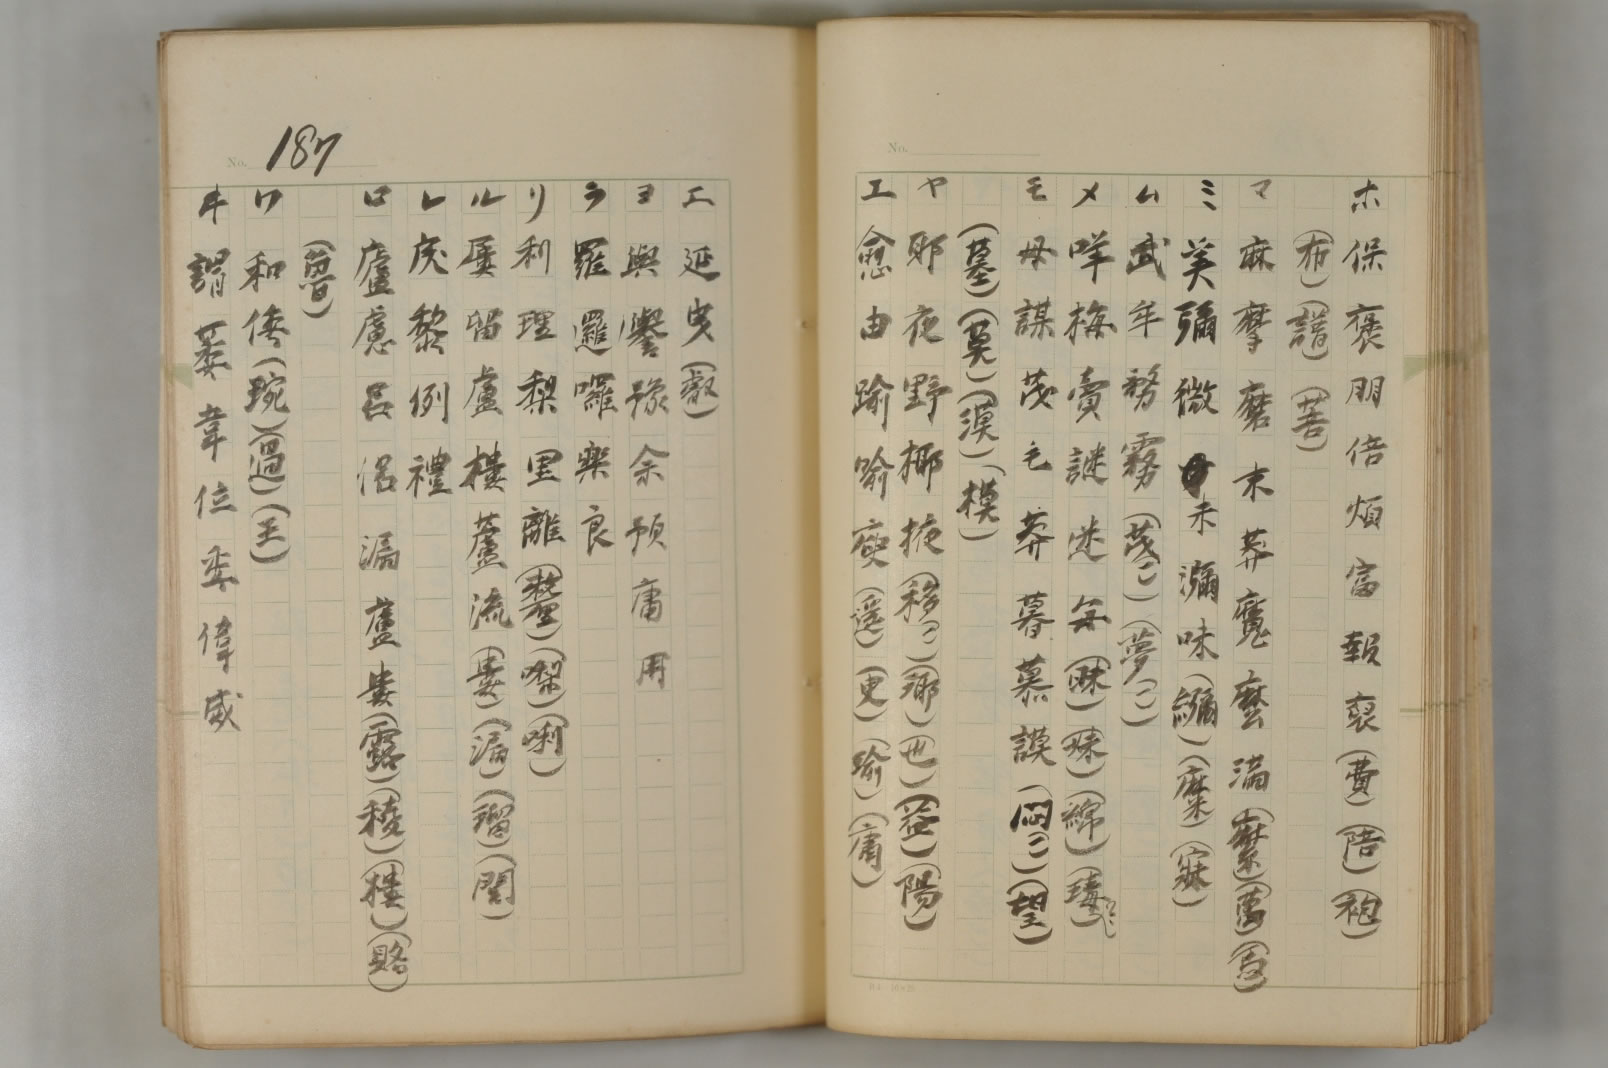 No.
ホ 保 褒 朋 倍 煩 富 報 裒 (費) (陪) (袍)
(布) (譜) (菩)
マ 麻 摩 磨 末 莽 魔 麼 満 (縻) (萬) (馬)
ミ 美 彌 微 未 瀰 味 (繝) (糜) (寐)
ム 武 牟 務 霧 (茂ニ) (夢ニ)
メ 咩 梅 賣 謎 迷 毎 (昧) (妹) (綿) (瑇)
モ 母 謀 茂 毛 莽 暮 慕 謨 (悶ニ) (望)
(墓) (莫) (漠) (模)
ヤ 耶 夜 野 椰 掖 (移ニ) (瑯) (也) (益) (陽)
エ 愈 由 踰 喻 庾 (遥) (臾) (踰) (庸)
No. 187
エ 延 曳 (叡)
ヨ 與 譽 豫 余 預 庸 用
ラ 羅 邏 囉 樂 良
リ 利 理 梨 里 離 (犛) (㗚) (唎)
ル 屢 留 盧 樓 蘆 流 (婁) (漏) (瑠) (閭)
レ 戾 黎 例 禮
ロ 廬 慮 呂 侶 漏 蘆 婁 (露) (稜) (樓) (賂)
(魯)
ワ 和 倭 (琬) (過) (王)
ヰ 謂 萎 韋 位 委 偉 威